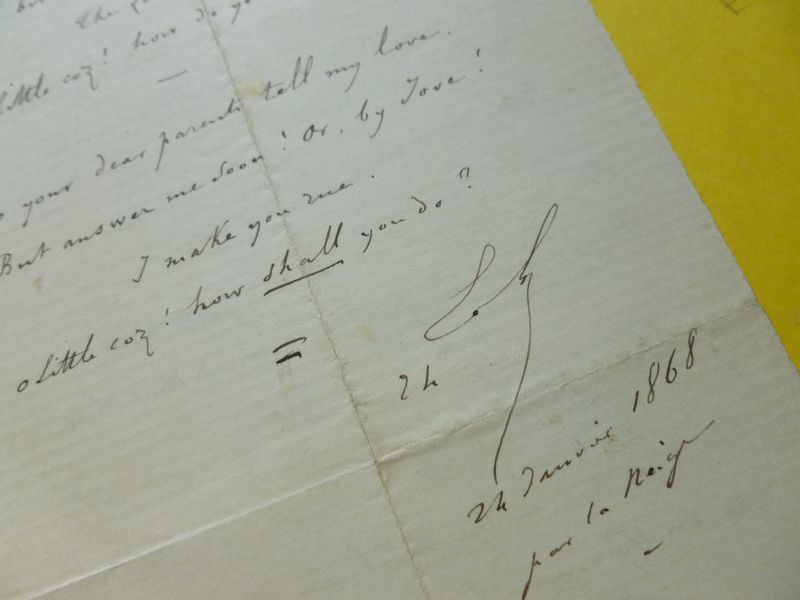 The
little coz! how do yo
your dear parents tell my love.
But answer me soon! Or, by Jove!
I make you rue.
o little coz! how shall you do?
24
24 Janvier 1868
par la Neige